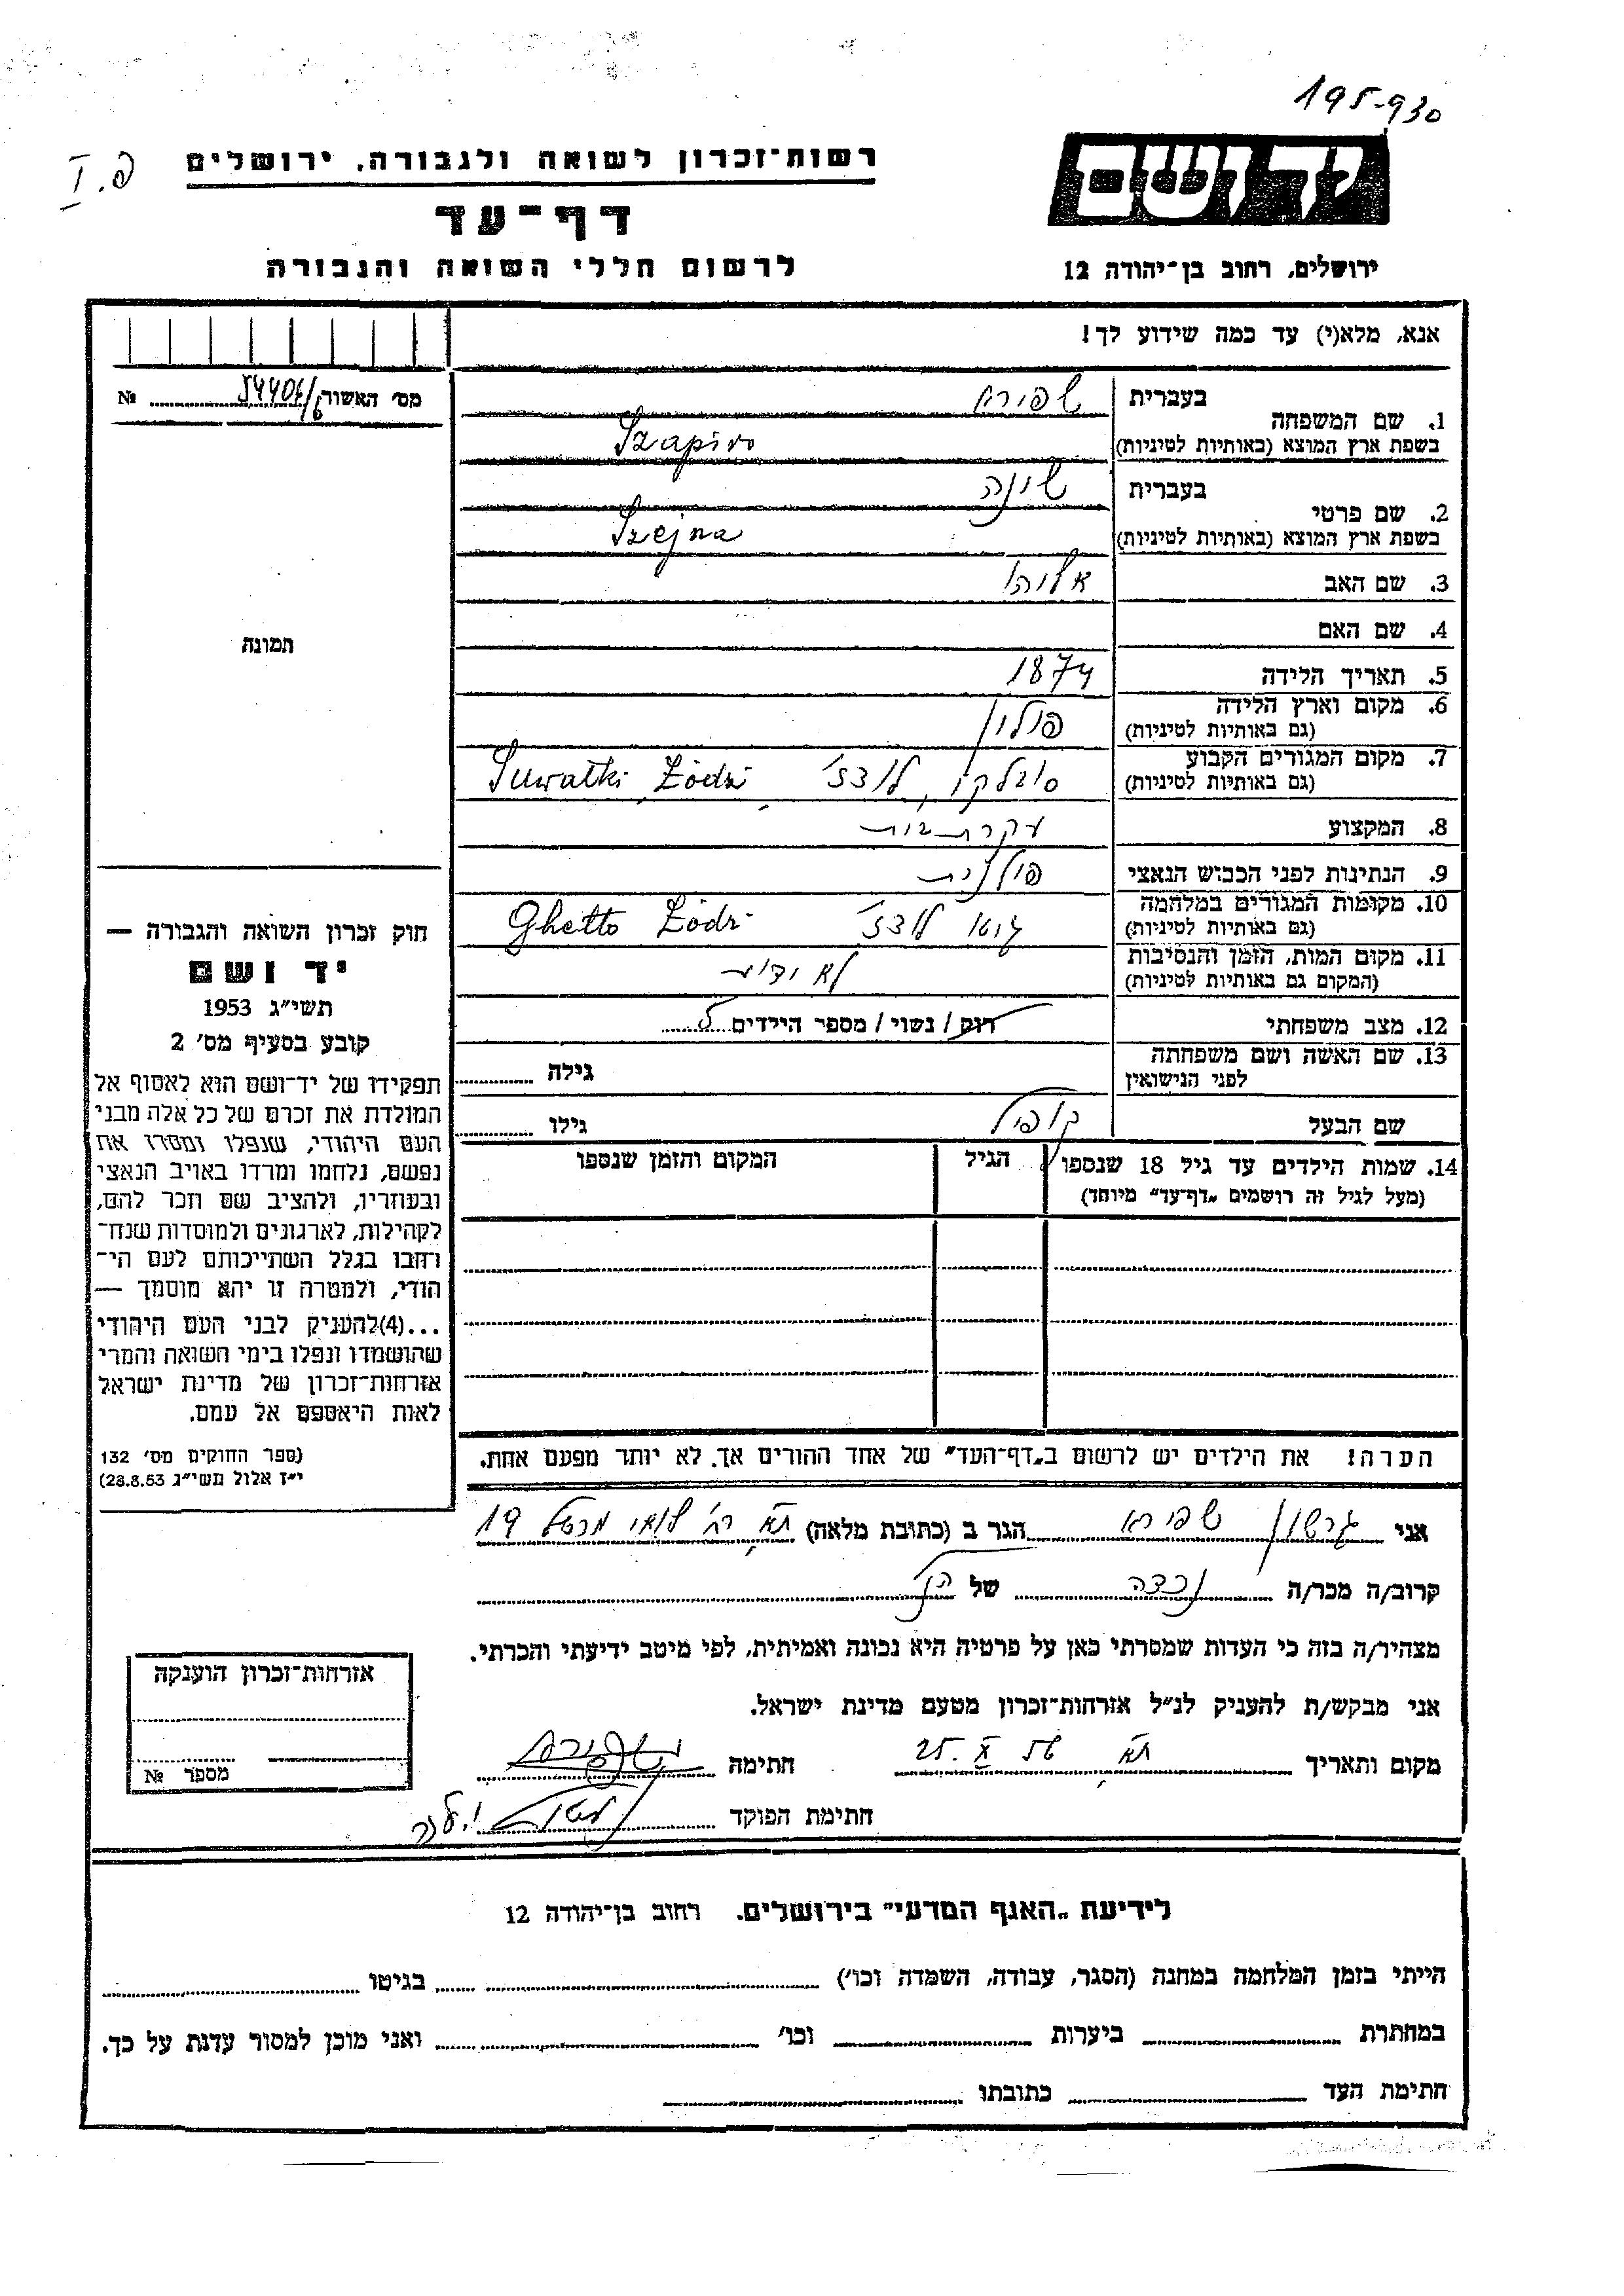 195-930
יד ושם
רשות-זכרון לשואה ולגבורה, ירושלים
פ. I
דף-עד
לרשום חללי השואה והגבורה
ירושלים, רחוב בן-יהודה 12
אנא, מלא(י) עד כמה שידוע לך!
מס' האשור № 54406/6
1. שם המשפחה בעברית שפירא
בשפת ארץ המוצא (באותיות לטיניות) Szapiro
2. שם פרטי בעברית שינה
בשפת ארץ המוצא (באותיות לטיניות) Szejna
3. שם האב אליהו
4. שם האם
תמונה
5. תאריך הלידה 1874
6. מקום וארץ הלידה פולין
(גם באותיות לטיניות)
7. מקום המגורים הקבוע סובלקי, לודז' Suwałki, Łódź
(גם באותיות לטיניות)
8. המקצוע עקרת-בית
9. הנתינות לפני הכבוש הנאצי פולנית
10. מקומות המגורים במלחמה גטו לודז' Ghetto Łódź
(גם באותיות לטיניות)
11. מקום המות, הזמן והנסיבות לא ידוע
(המקום גם באותיות לטיניות)
12. מצב משפחתי רווק / נשוי / מספר הילדים
13. שם האשה ושם משפחתה גילה
לפני הנישואין
שם הבעל קופל גילו
14. שמות הילדים עד גיל 18 שנספו הגיל המקום והזמן שנספו
(מעל לגיל זה רושמים „דף-עד" מיוחד)
חוק זכרון השואה והגבורה —
יד ושם
תשי"ג 1953
קובע בסעיף מס' 2
תפקידו של יד-ושם הוא לאסוף אל
המולדת את זכרם של כל אלה מבני
העם היהודי, שנפלו ומסרו את
נפשם, נלחמו ומרדו באויב הנאצי
ובעוזריו, ולהציב שם וזכר להם,
לקהילות, לארגונים ולמוסדות שנח-
רחבו בגלל השתייכותם לעם הי-
הודי, ולמטרה זו יהא מוסמך —
...(4)להעניק לבני העם היהודי
שהושמדו ונפלו בימי השואה והמרי
אזרחות-זכרון של מדינת ישראל
לאות היאספם אל עמם.
(ספר החוקים מס' 132
י"ז אלול תשי"ג 28.8.53)
הערה! את הילדים יש לרשום ב„דף-העד" של אחד ההורים אך לא יותר מפעם אחת.
אני גרשון שפירא הגר ב (כתובת מלאה) ת"א רח' 19
קרוב/ה מכר/ה נכדה של הן
מצהיר/ה בזה כי העדות שמסרתי כאן על פרטיה היא נכונה ואמיתית, לפי מיטב ידיעתי והכרתי.
אני מבקש/ת להעניק לנ"ל אזרחות-זכרון מטעם מדינת ישראל.
מקום ותאריך ת"א 25. X 56 חתימה
חתימת הפוקד
אזרחות-זכרון הוענקה
מספר №
לידיעת „האגף המדעי" בירושלים, רחוב בן-יהודה 12
הייתי בזמן המלחמה במחנה (הסגר, עבודה, השמדה וכו') בגיטו
במחתרת ביערות וכו' ואני מוכן למסור עדות על כך.
חתימת העד כתובתו